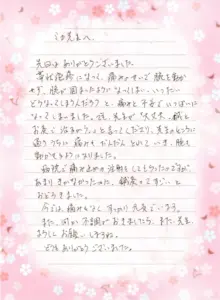 先日はありがとうございました。
帯状疱疹になり、痛みのせいで腕を動か
せず、腕が固まったようになってしまい、いったい
どうなってしまうんだろうと、痛みと不安でいっぱいに
なってしまいました。
お灸で治まがりますよと言ってくださり、先生のところに
通ううちに痛みもだんだんとひいていき、腕も
動かせるようになりました。
病院で痛み止めの注射をしてもらったのですが、
あまりきかなかったので、鍼灸ってすごいと
おどろきました。
今では痛みもなくすっかり元気でいます。
また、何か不調がおきましたら、また先生
よろしくお願いしますね。
ありがとうございました。